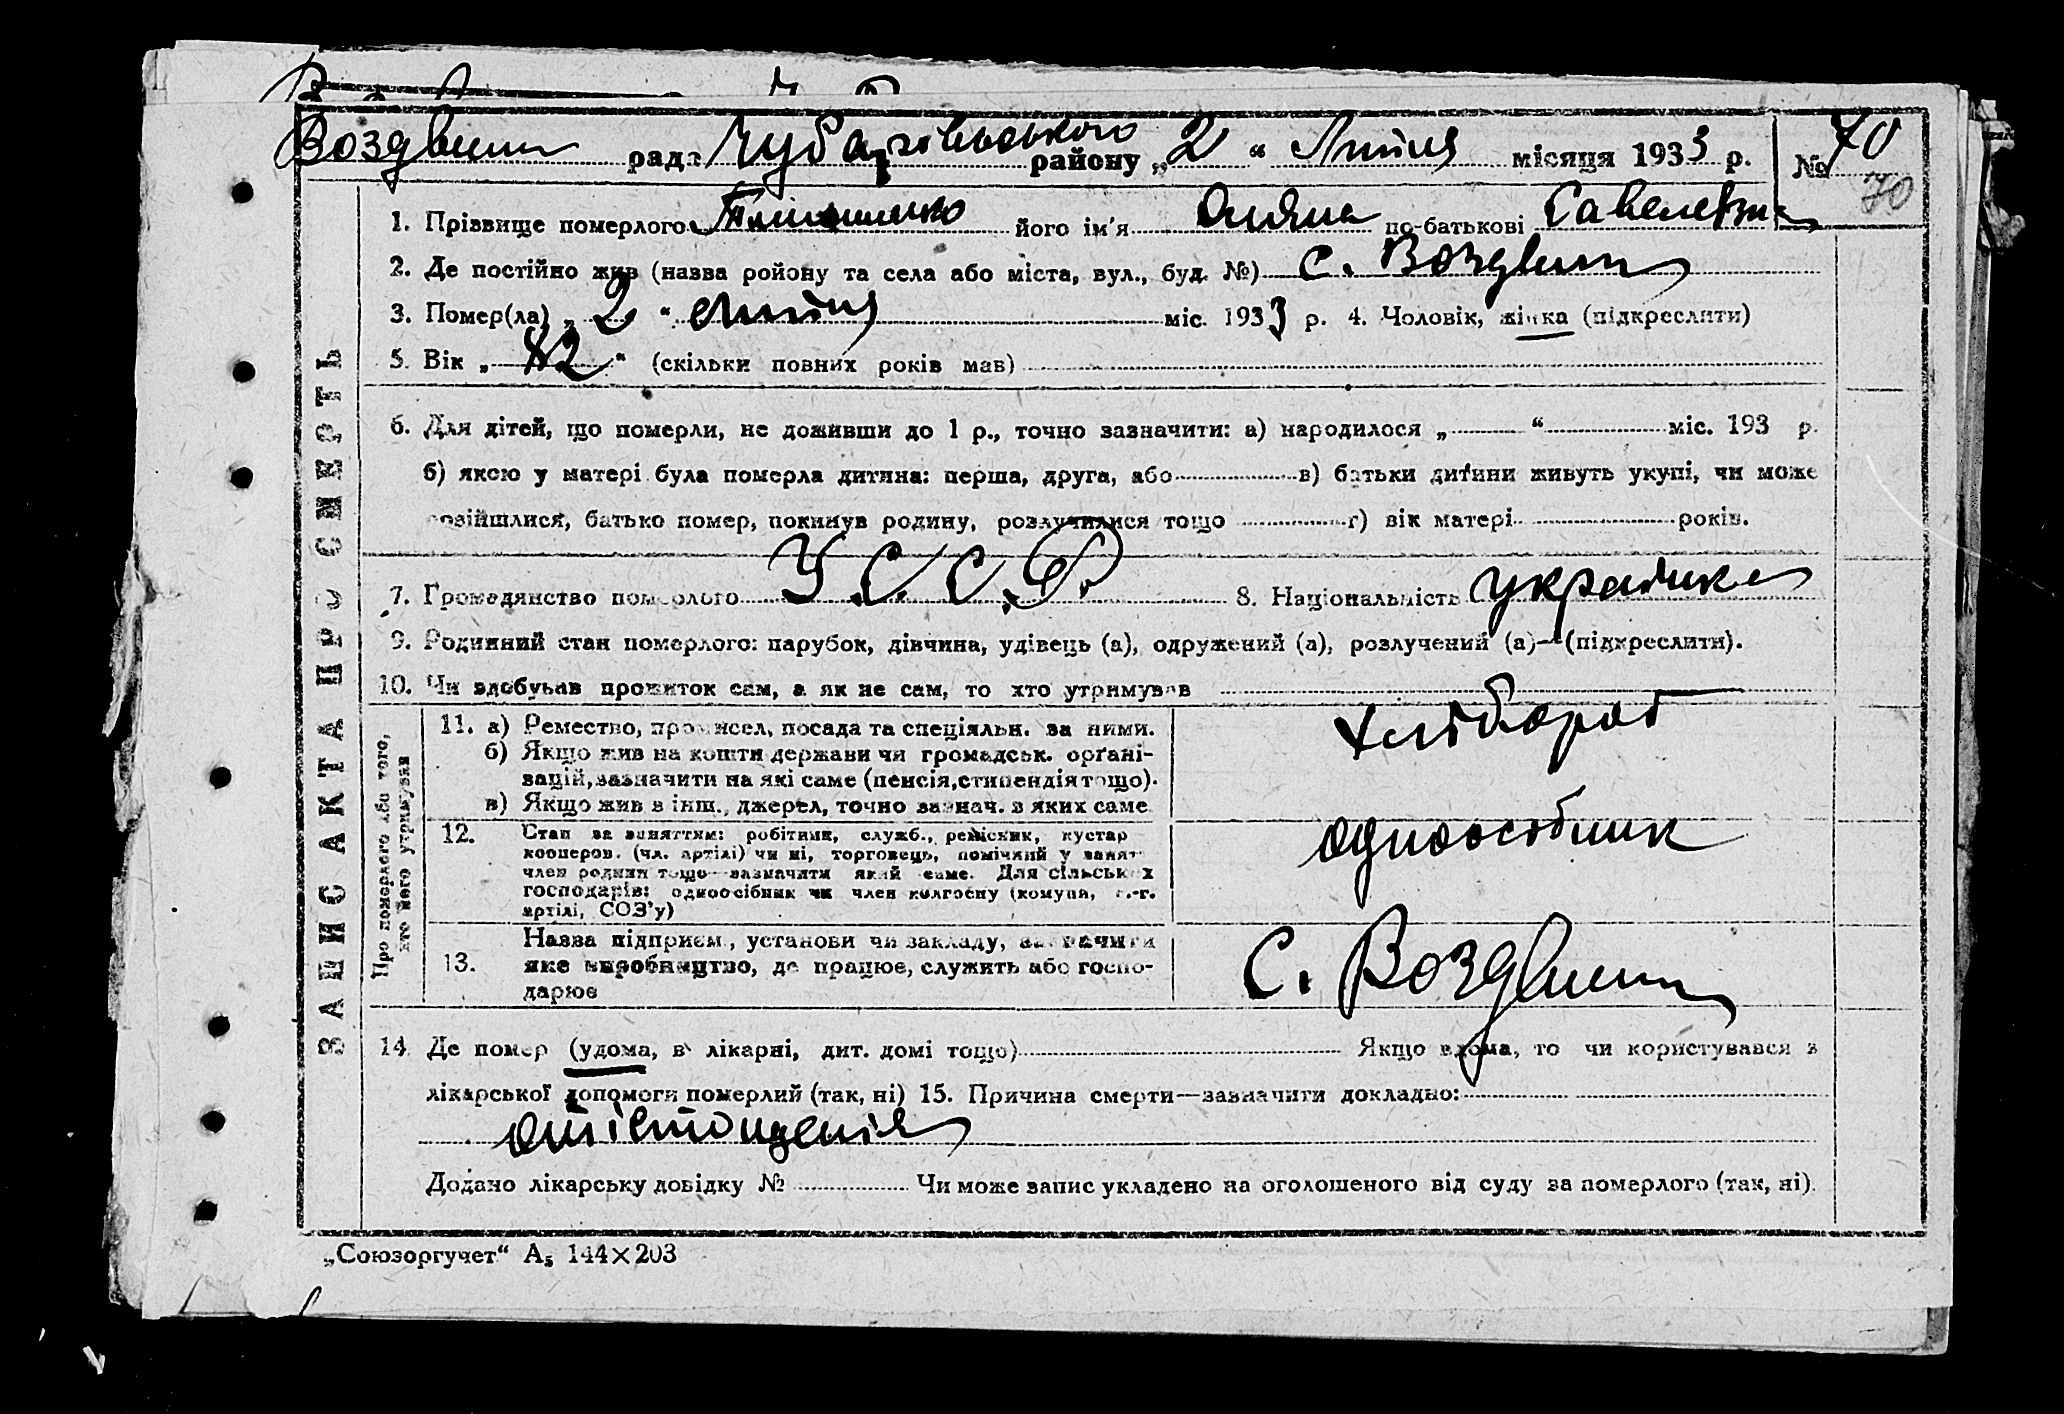 Воздвиж рада Чубарівського району „2“ Липня місяця 1933 р. № 70
70
1. Прізвище померлого його ім'я Оляна по-батькові Савелевна
2. Де постійно жив (назва ройону та села або міста, вул., буд. №) С. Воздвиж
3. Помер(ла) „2“ липня міс. 1933 р. 4. Чоловік, жінка (підкреслити)
5. Вік „ “ (скільки повних років мав)
6. Для дітей, що померли, не доживши до 1 р., точно зазначити: а) народилося „ “ міс. 193 р.
б) якою у матері була померла дитина: перша, друга, або в) батьки дитини живуть укупі, чи може
розійшлися, батько помер, покинув родину, розлучилися тощо г) вік матері років.
7. Громадянство померлого У.С.С.Р. 8. Національність україїнка
9. Родинний стан померлого: парубок, дівчина, удівець (а), одружений (а), розлучений (а)—(підкреслити).
10. Чи здобував прожиток сам, а як не сам, то хто утримував
ЗАПИС АКТА ПРО СМЕРТЬ
Про померлого або того, хто його утримував
11. а) Ремество, промисел, посада та спеціяльн. за ними.
б) Якщо жив на кошти держави чи громадськ. орґані-
зацій, зазначити на які саме (пенсія, стипендія тощо).
в) Якщо жив з інш. джерел, точно зазнач. з яких саме
хлібороб
12. Стан за заняттям: робітник, служб., ремісник, кустар
кооперов. (чл. артілі) чи ні, торговець, помічний у занят.
член родини тощо—зазначити який саме. Для сільських
господарів: одноосібник чи член колгоспу (комуни, с.-г.
артілі, СОЗ'у)
одноосібник
13. Назва підприєм., установи чи закладу, зазначити
яке виробництво, де працює, служить або госпо-
дарює
С. Воздвиж
14. Де помер (удома, в лікарні, дит. домі тощо) Якщо вдома, то чи користувався з
лікарської допомоги померлий (так, ні) 15. Причина смерти—зазначити докладно:
отістощенія
Додано лікарську довідку № Чи може запис укладено на оголошеного від суду за померлого (так, ні).
„Союзоргучет“ А₅ 144×203